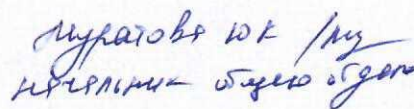 Муратова ЮК
начальник общего отдела